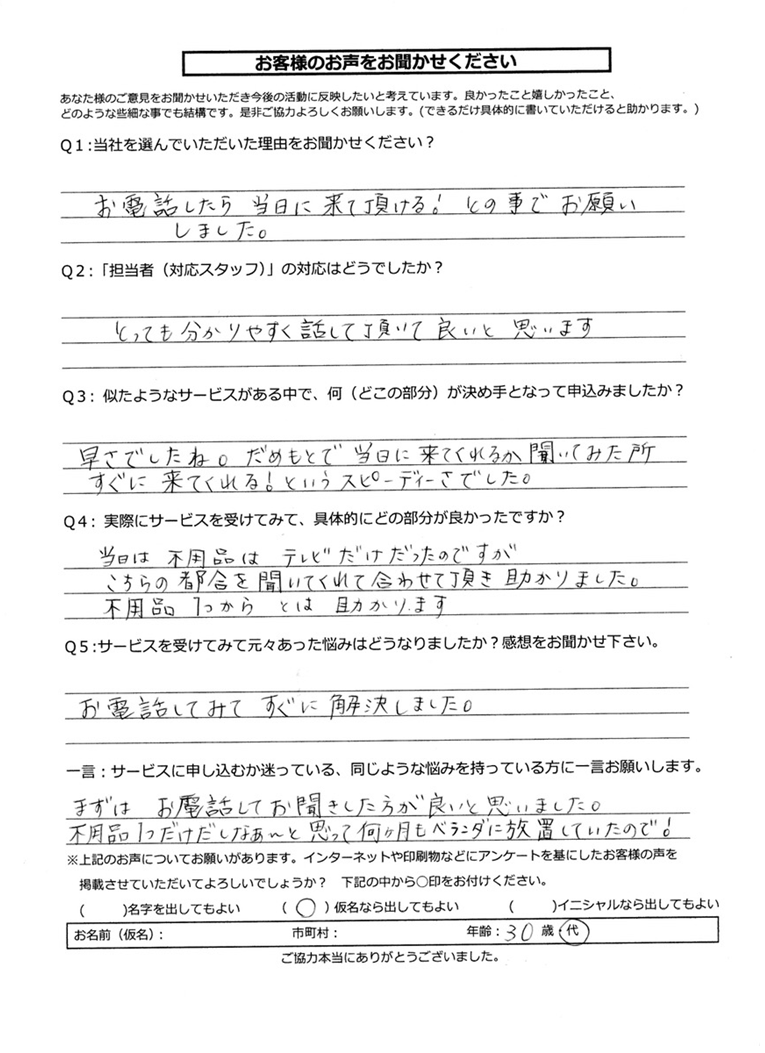 お客様のお声をお聞かせください
あなた様のご意見をお聞かせいただき今後の活動に反映したいと考えています。良かったこと嬉しかったこと、
どのような些細な事でも結構です。是非ご協力よろしくお願いします。(できるだけ具体的に書いていただけると助かります。)
Q1:当社を選んでいただいた理由をお聞かせください？
お電話したら 当日に 来て頂ける! との事で お願い
しました。
Q2:「担当者（対応スタッフ）」の対応はどうでしたか？
とっても分かりやすく話して頂いて 良いと 思います
Q3: 似たようなサービスがある中で、何（どこの部分）が決め手となって申込みましたか？
早さでしたね。だめもとで 当日に 来てくれるか 聞いてみた所
すぐに 来てくれる!という スピーディーさでした。
Q4: 実際にサービスを受けてみて、具体的にどの部分が良かったですか？
当日は 不用品は テレビだけだったのですが
こちらの都合を聞いてくれて合わせて頂き 助かりました。
不用品 1つから とは 助かります
Q5:サービスを受けてみて元々あった悩みはどうなりましたか？感想をお聞かせ下さい。
お電話してみて すぐに 解決しました。
一言：サービスに申し込むか迷っている、同じような悩みを持っている方に一言お願いします。
まずは お電話して お聞きした方が良いと思いました。
不用品1つだけだしなぁ〜と 思って何ヶ月もベランダに放置していたので!
※上記のお声についてお願いがあります。インターネットや印刷物などにアンケートを基にしたお客様の声を
掲載させていただいてよろしいでしょうか？ 下記の中から○印をお付けください。
( )名字を出してもよい ( ○ )仮名なら出してもよい ( )イニシャルなら出してもよい
お名前（仮名）: 市町村: 年齢:30 歳・代
ご協力本当にありがとうございました。